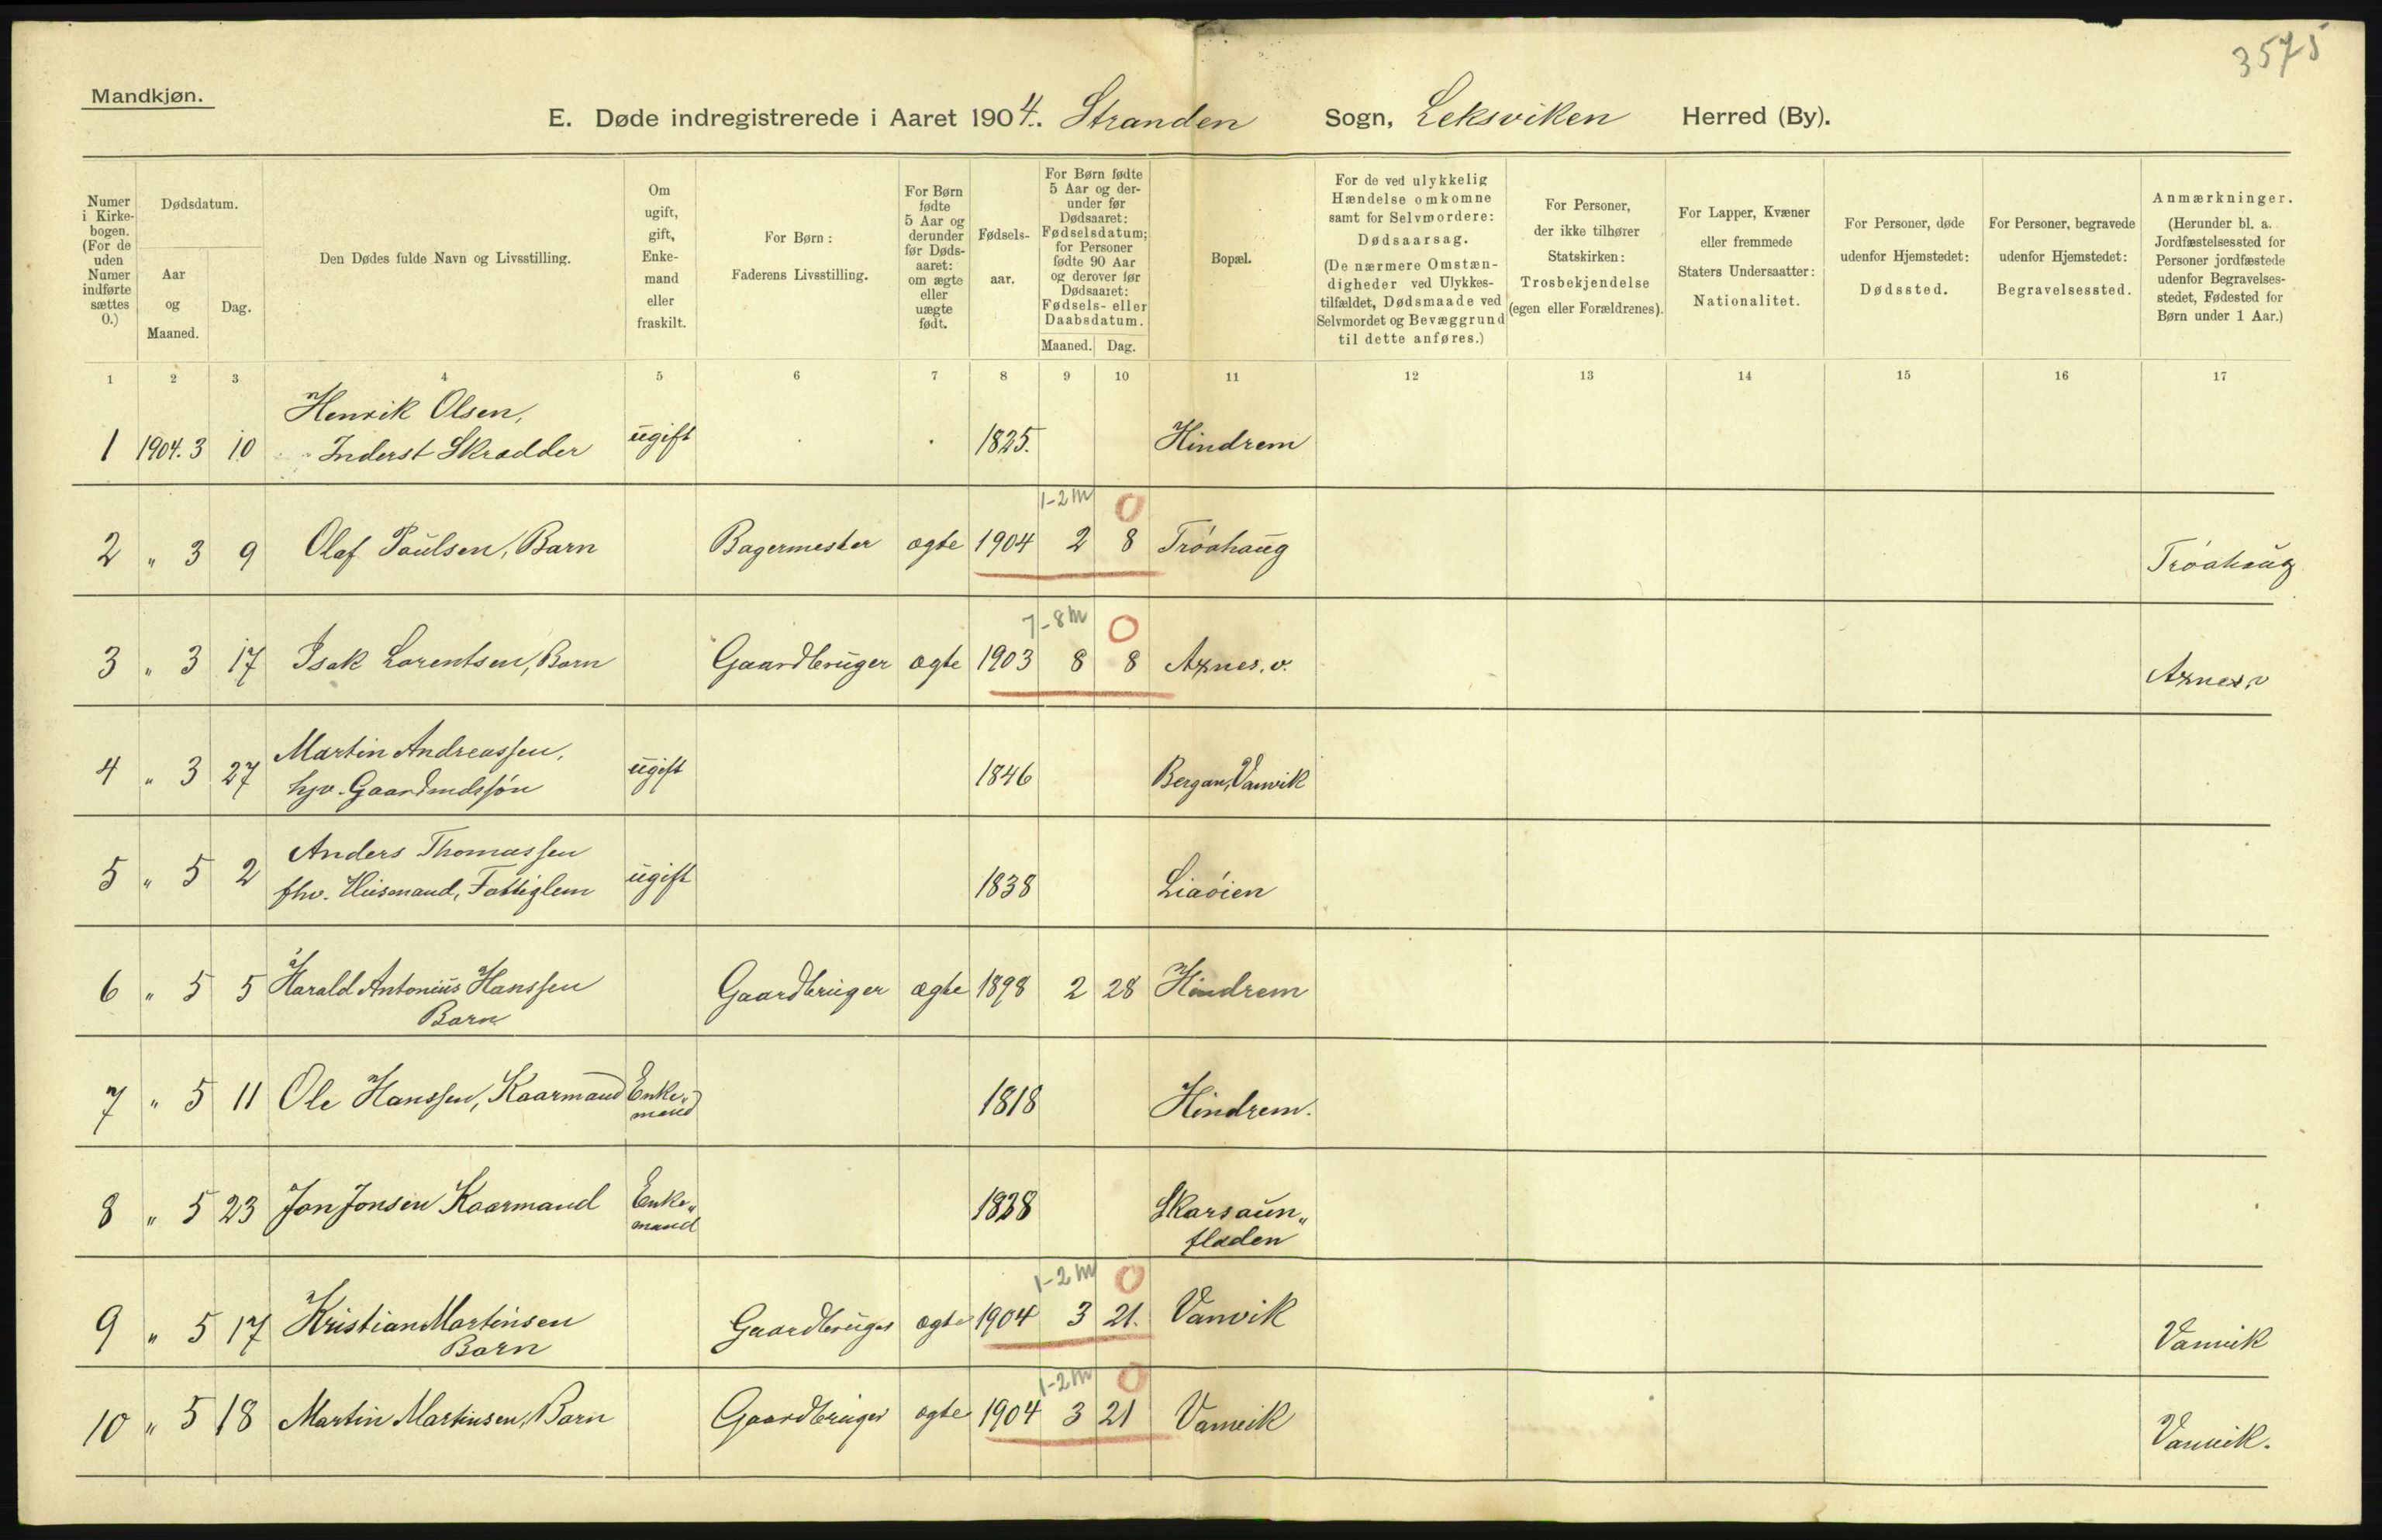 3575
Mandkjøn.
E. Døde indregistrerede i Aaret 1904. Stranden Sogn, Leksviken Herred (By).
Numer
i Kirke-
bogen.
(For de
uden
Numer
indførte
sættes
0.)
Dødsdatum.
Aar
og
Maaned.
Dag.
Den Dødes fulde Navn og Livsstilling.
Om
ugift,
gift,
Enke-
mand
eller
fraskilt.
For Børn:
Faderens Livsstilling.
For Børn
fødte
5 Aar og
derunder
før Døds-
aaret:
om ægte
eller
uægte
født.
Fødsels-
aar.
For Børn fødte
5 Aar og der-
under før
Dødsaaret:
Fødselsdatum;
for Personer
fødte 90 Aar
og derover før
Dødsaaret:
Fødsels- eller
Daabsdatum.
Maaned. Dag.
Bopæl.
For de ved ulykkelig
Hændelse omkomne
samt for Selvmordere:
Dødsaarsag.
(De nærmere Omstæn-
digheder ved Ulykkes-
tilfældet, Dødsmaade ved
Selvmordet og Bevæggrund
til dette anføres.)
For Personer,
der ikke tilhører
Statskirken:
Trosbekjendelse
(egen eller Forældrenes).
For Lapper, Kvæner
eller fremmede
Staters Undersaatter:
Nationalitet.
For Personer, døde
udenfor Hjemstedet:
Dødssted.
For Personer, begravede
udenfor Hjemstedet:
Begravelsessted.
Anmærkninger.
(Herunder bl. a.
Jordfæstelsessted for
Personer jordfæstede
udenfor Begravelses-
stedet, Fødested for
Børn under 1 Aar.)
1 2 3 4 5 6 7 8 9 10 11 12 13 14 15 16 17
Henrik Olsen,
1 1904. 3 10 Inderst Skrædder ugift 1825. Hindrem
1-2 m 0
2 " 3 9 Olaf Paulsen, Barn Bagermester ægte 1904 2 8 Trøahaug Trøahaug
7-8 m 0
3 " 3 17 Isak Lorentsen, Barn Gaardbruger ægte 1903 8 8 Axnes. v. Axnes. v
Martin Andreassen,
4 " 3 27 hjv. Gaardmdssøn ugift 1846 Bergan, Vanvik
Anders Thomassen
5 " 5 2 fhv. Husmand, Fattiglem ugift 1838 Liaøien
6 " 5 5 Harald Antonius Hanssen Gaardbruger ægte 1898 2 28 Hindrem
Barn
7 " 5 11 Ole Hanssen, Kaarmand Enke„ 1818 Hindrem.
mand
8 " 5 23 Jon Jonsen Kaarmand Enke„ 1828 Skarsaun„
mand fladen
1-2 m 0
9 " 5 17 Kristian Martinsen Gaardbruger ægte 1904 3 21. Vanvik Vanvik
Barn
1-2 m 0
10 " 5 18 Martin Martinsen, Barn Gaardbruger ægte 1904 3 21 Vanvik Vanvik.